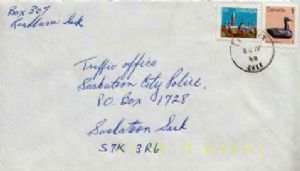 Box 307
Lashburn Sask
Canada 1
Traffic office
Saskatoon City Police.
P.O. Box 1728
Saskatoon Sask
S7K 3R6